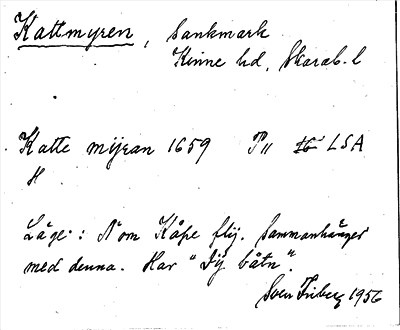 Kattmyren, Sankmark
Kinne hd, Skarab. l
Katte mijran 1659 P 11 LSA
H
Läge: N om Kåpe flÿ. Sammanhänger
med denna. Har "Dÿ båtn".
Sven Friberg 1956